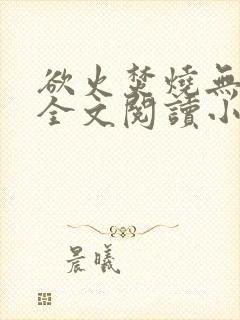 欲火焚燒無
全文閱讀小
晨曦